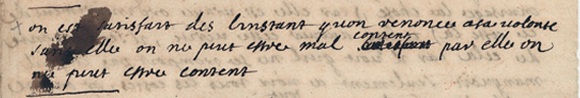 on est satisfait des linstant quon renonce a sa volonte
sans elle on ne peut estre mal content par elle on
ne peut estre content